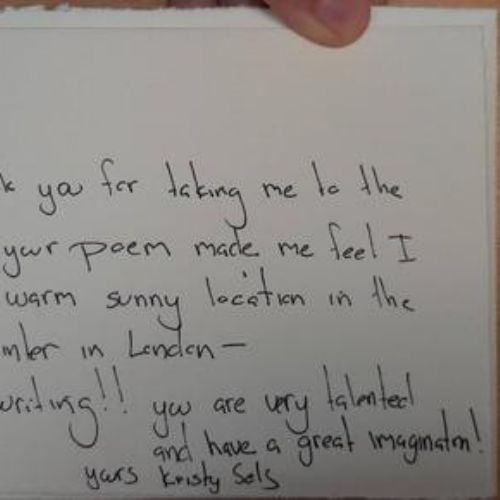 k you for taking me to the
your poem made me feel I
warm sunny location in the
nter in London —
writing!! you are very talented
and have a great imaginaton!
yours Kristy Sels